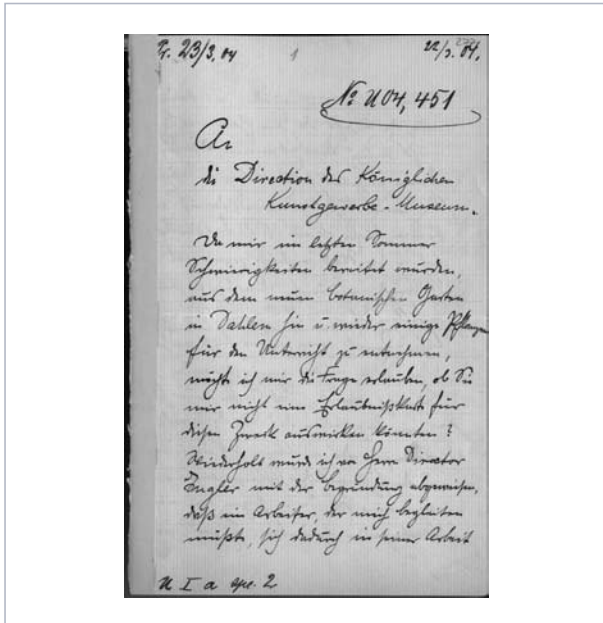 Pr. 23/3. 04
22/3. 04.
No U 04, 451
An
die Direction des Königlichen
Kunstgewerbe-Museum.
Da mir im letzten Sommer
Schwierigkeiten bereitet wurden,
aus dem neuen botanischen Garten
in Dahlem hin u. wieder einige Pflanzen
für den Unterricht zu entnehmen,
möcht ich mir die Frage erlauben, ob Sie
mir nicht eine Erlaubnißkarte für
diesen Zweck auswirken könnten?
Wiederholt wurde ich von Herrn Director
Engler mit der Begründung abgewiesen,
daß ein Arbeiter, der mich begleiten
müßte, sich dadurch in seiner Arbeit
U I a spe. 2